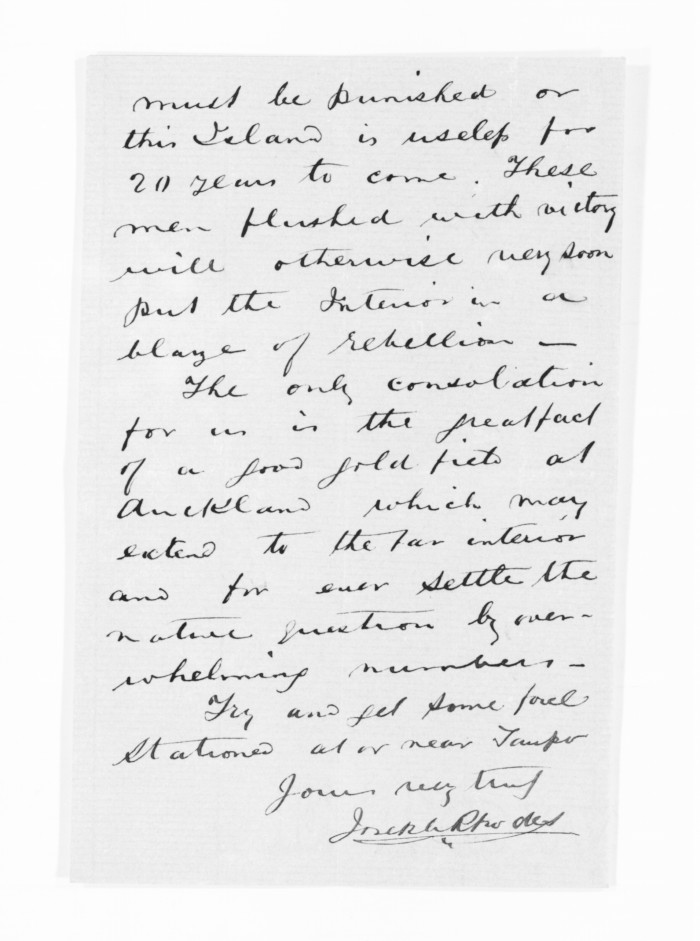 must be punished or
this Island is useless for
20 years to come. These
men flushed with victory
will otherwise very soon
put the Interior in a
blaze of rebellion —
The only consolation
for us is the great fact
of a good gold field at
Auckland which may
extend to the far interior
and for ever settle the
native question by over-
whelming numbers —
Try and get some force
stationed at or near Taupo
Yours very truly
Joseph Rhodes